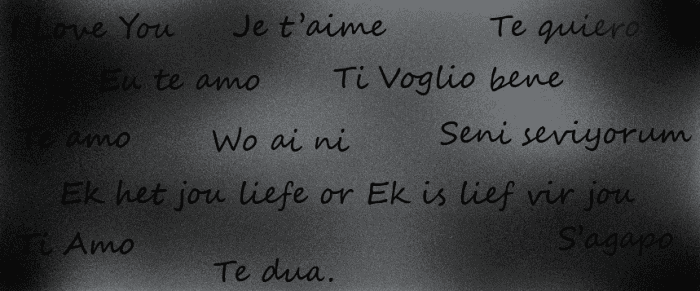 I Love You Je t'aime Te quiero
Eu te amo Ti Voglio bene
Te amo Wo ai ni Seni seviyorum
Ek het jou liefe or Ek is lief vir jou
Ti Amo S'agapo
Te dua.